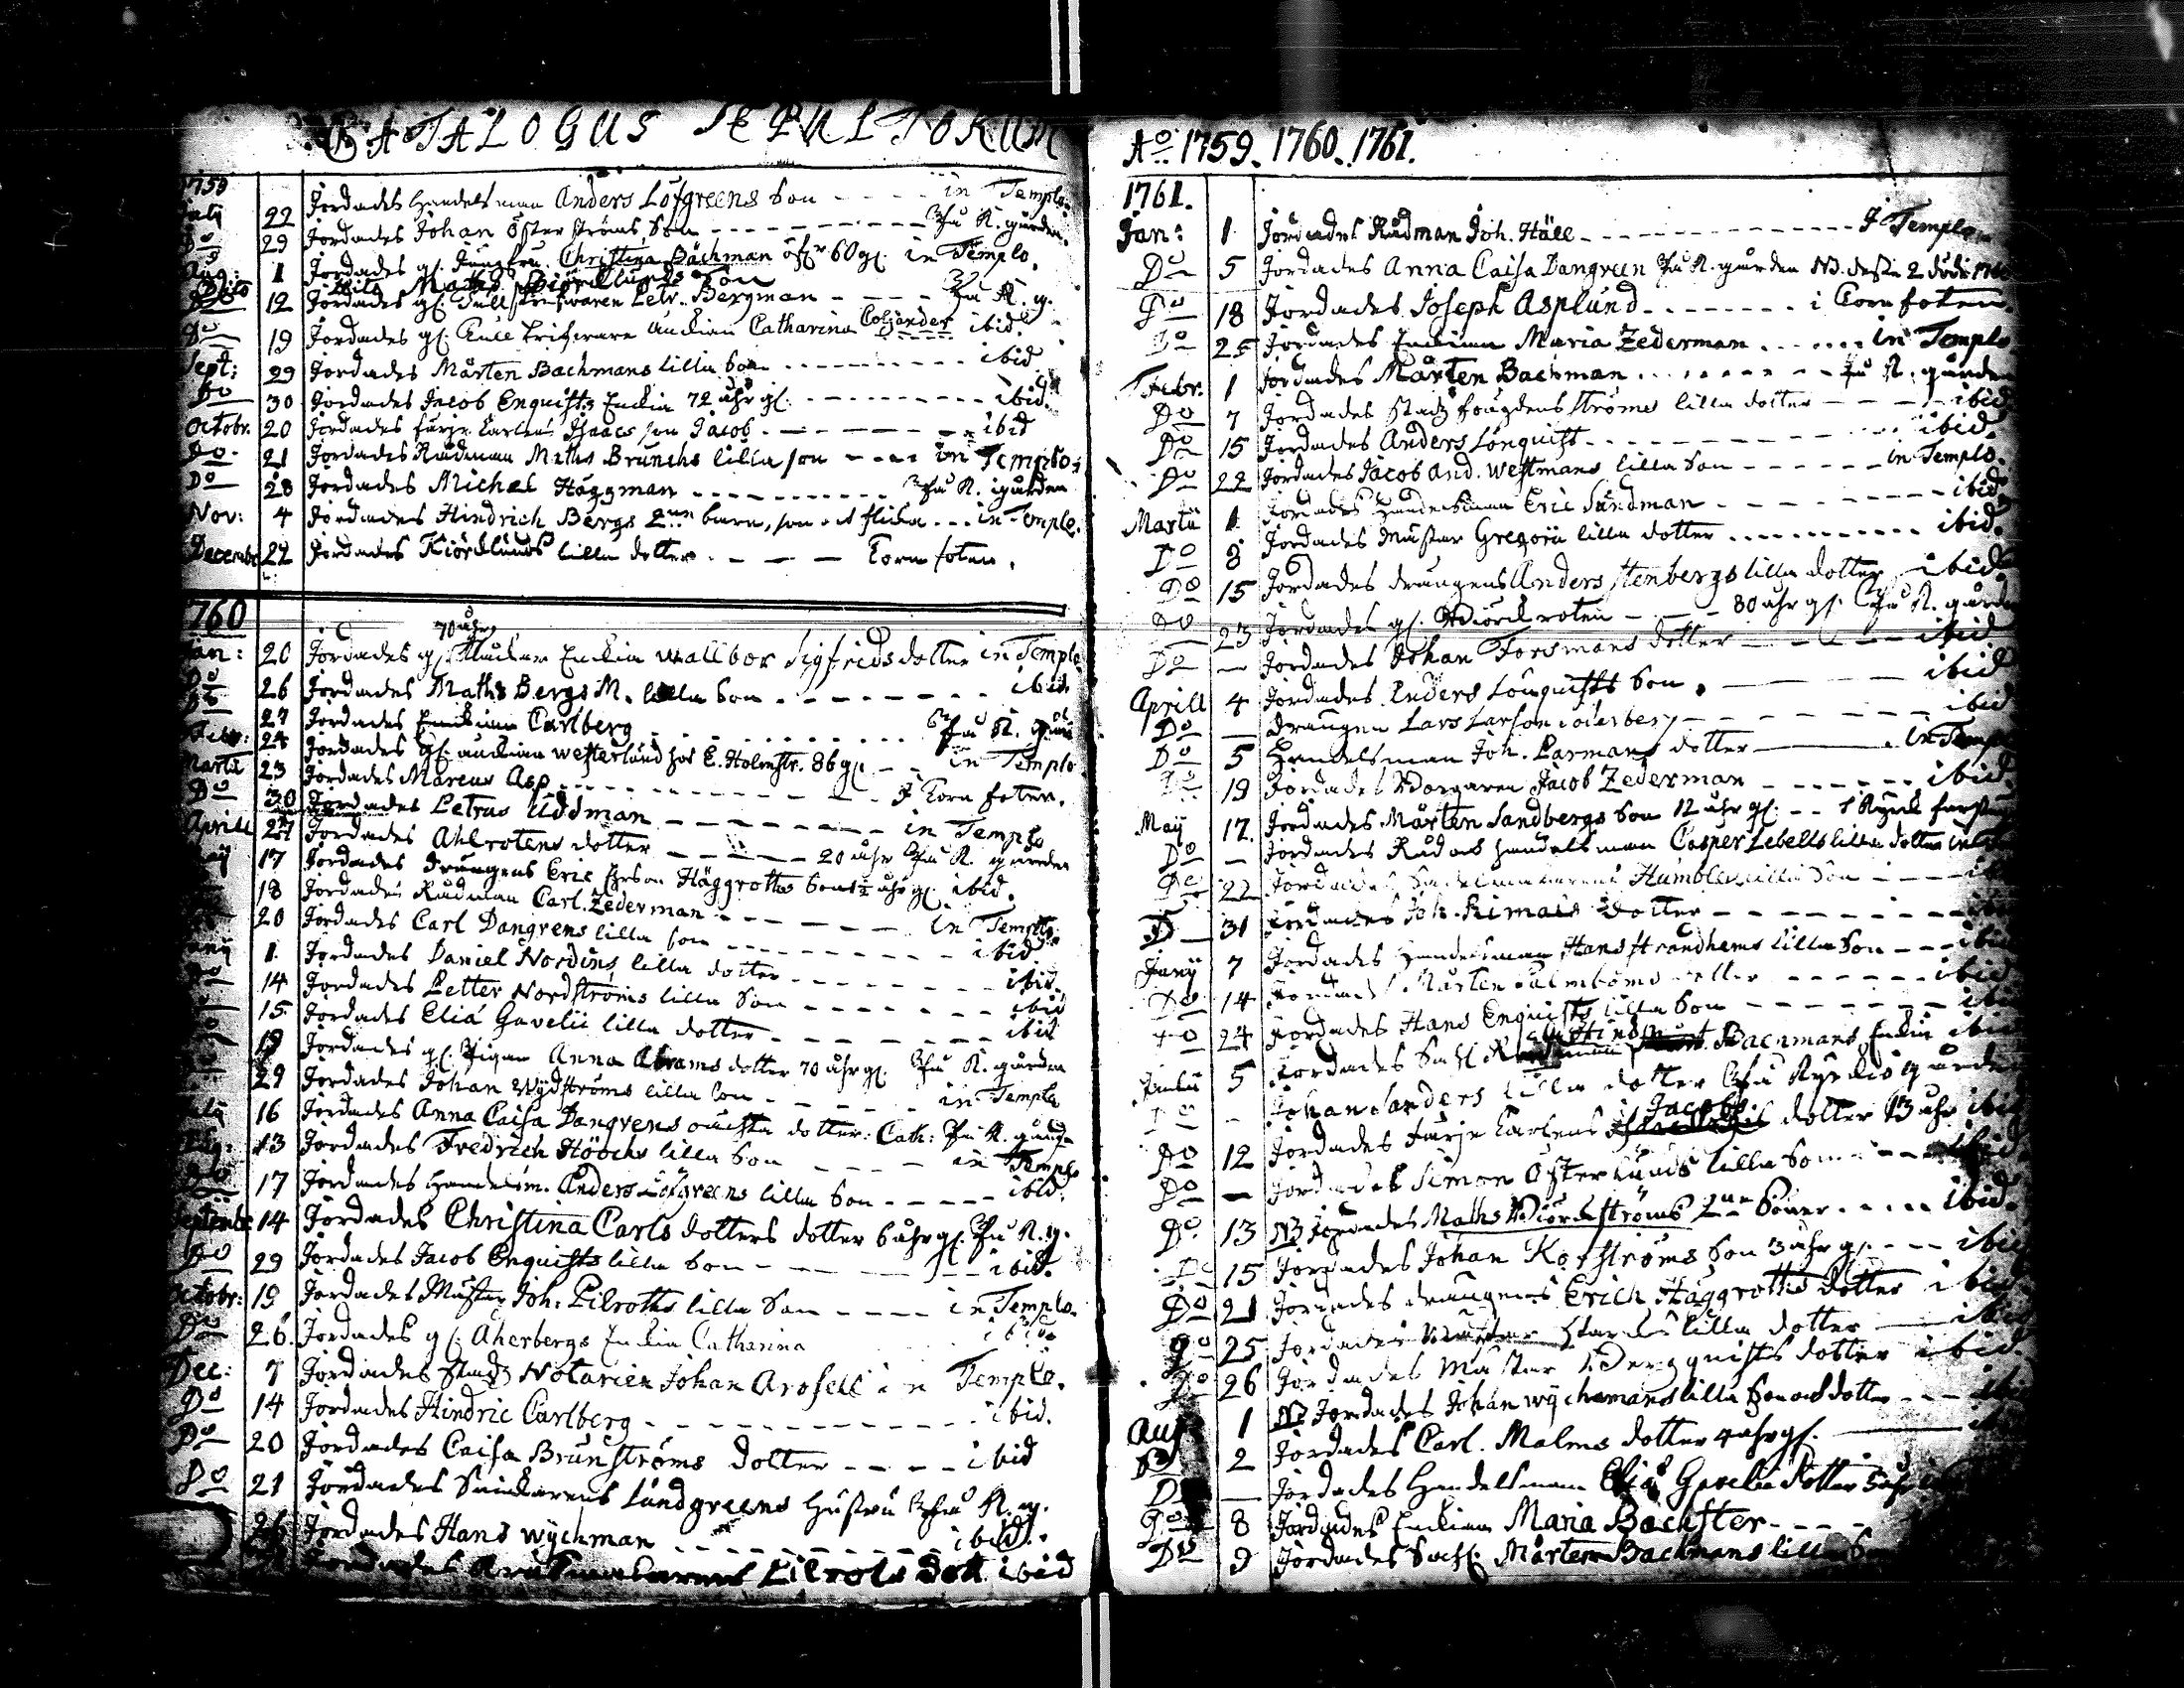 CATALOGUS SEPULTORUM
1759
July 22 Jordades Handelsman Anders Löfgreens Son - - - in Templo.
Do 29 Jordades Johan Österströms Son - - - På K. gården.
Aug: 1 Jordades gl. Jungfru Christina Bächman öfr 60 gl. in Templo.
Dito Ditto Maths Biörklunds Son
Do 12 Jordades gl. Tullskrifwaren Petr. Bergman - - - På K. g.
Do 19 Jordades gl. Tull skrifvare änckian Catharina Coljander ibid.
Sept: 29 Jordades Mårten Bachmans lilla Son - - - ibid
Do 30 Jordades Jacob Enquists Enckia 72 åhr gl. - - - ibid.
Octobr. 20 Jordades färje Karlens Isaacs son Jacob - - - ibid
Do 21 Jordades Rådman Maths Brunchs lilla son - - - in Templo.
Do 28 Jordades Michel Häggman - - - På K. gården
Nov: 4 Jordades Hindrich Bergs 2ne barn, son och flicka - - - in Templo.
Decembr 22 Jordades Kiörklunds lilla dotter - - - Torn foten.
1760
70 åhr
Jan: 20 Jordades gl. Enckia Wallbor Sigfrids dotter in Templo
Do 26 Jordades Maths Bergs M. lilla Son - - - ibid.
Do 27 Jordades Enckian Carlberg - - - På K. gård
Febr: 24 Jordades gl. änckian Westerlund hos E. Holmstr. 86 gl. - - in Templo
Martii 23 Jordades Marcus Asp - - - I Torn foten.
Do 30 Jordades Petrus Uddman - - - in Templo
Aprill 27 Jordades Ahlrotens dotter - - - 20 åhr På K. gården
May 17 Jordades drängens Eric Ersson Häggroths Son åhr gl. ibid.
18 Jordades Rådman Carl Zederman - - - in Templo
20 Jordades Carl Dangrens lilla son - - - ibid
Juny 1 Jordades Daniel Nordins lilla dotter - - - ibid.
Do 14 Jordades Petter Nordströms lilla Son - - - ibid
Do 15 Jordades Elia Gavelii lilla dotter - - - ibid
19 Jordades gl. Pigan Anna Abrams dotter 70 åhr gl. På K. gården
29 Jordades Johan Wydströms lilla Son - - - in Templo
July 16 Jordades Anna Caisa Dangrens dotter: Cath: På K. gård
Aug: 13 Jordades Fredrich Hööchs lilla Son - - - in Templo
Do 17 Jordades Handelsm. Anders Löfgreens lilla Son - - - ibid.
Septembr 14 Jordades Christina Carls dotters dotter 6 åhr gl. På K. g.
Do 29 Jordades Jacob Enquists lilla Son - - - ibid.
Octobr: 19 Jordades Mäster Joh: Pilroths lilla Son - - - in Templo.
Do 26. Jordades gl. Aherbergs Enckia Catharina ibid.
Dec: 7 Jordades Stads Notarien Johan Arosell in Templo.
Do 14 Jordades Hindric Carlberg - - - ibid.
Do 20 Jordades Caisa Brunströms dotter - - - ibid
Do 21 Jordades Snickarens Lundgreens Hustru På K. g.
26 Jordades Hans Wychman - - - ibid.
Jordades Pilrots dott. ibid
Ao. 1759. 1760. 1761.
1761.
Jan: 1 Jordades Rådman Joh. Häll - - - I Templo
Do 5 Jordades Anna Caisa Dangreen På K. gården NB. 1760
Do 18 Jordades Joseph Asplund - - - i Torn foten.
Do 25 Jordades Enckian Maria Zederman - - - in Templo
Febr. 1 Jordades Mårten Bachman - - - På K. gården
Do 7 Jordades Stads fougdens Ströms lilla dotter - - - ibid
Do 15 Jordades Anders Lönquist - - - ibid.
Do 22 Jordades Jacob And. Westmans lilla Son - - - in Templo.
Martii 1 Jordades Handelsman Eric Sundman - - - ibid.
Do 8 Jordades Mäster Gregorii lilla dotter - - - ibid.
Do 15 Jordades drängens Anders Stenbergs lilla dotter ibid
Do 23 Jordades gl. Biörckroten - - - 80 åhr gl. På K. gården
Do — Jordades Johan Forsmans dotter - - - ibid
Aprill 4 Jordades Anders Lönquists Son. - - - ibid
Do — drängen Lars Larson - - - ibid
Do 5 Handelsman Joh. Parmans dotter - - - in Templo
Do 19 Jordades Borgaren Jacob Zederman - - - ibid
May 17. Jordades Mårten Sandbergs Son 12 åhr gl. - -
Do — Jordades Rådoch handelsman Casper Lebells lilla dotter
Do 22 Jordades Sadelmakarens Humbles lilla Son - - -
Do 31 Jordades Joh. Rimais dotter - - - ibid
Juny 7 Jordades Handelsman Hans Strandhems lilla Son - - - ibid
Do 14 Jordades Mårten Palmboms dotter - - - ibid
Do 24 Jordades Hans Enquists lilla Son - - - ibid
Julii 5 Jordades Sahl. Bachmans Enckia ibid
Do - Johan Sanders lilla dotter På Kyrkiogården
Do 12 Jordades färje Karlens Jacobs dotter 13 åhr ibid
Do — Jordades Simon Österlunds lilla Son - - - ibid
Do 13 NB Jordades Maths Biörckströms 2ne Söner - - - ibid.
Do 15 Jordades Johan Kofströms Son 3 åhr gl. - - - ibid
Do 21 Jordades drängens Erich Häggroths dotter ibid
Do 25 Jordades lilla dotter — ibid
Do 26 Jordades Mäster Bergquists dotter ibid.
Aug 1 NB Jordades Johan Wychmans lilla Son och dotter - - - ibid
Do 2 Jordades Carl Malms dotter 4 åhr gl. —
Do — Jordades Handelsman Elias Gavelii dotter 5 åhr
Do 8 Jordades Enckian Maria Backster - - -
Do 9 Jordades Sahl. Mårten Bachmans lilla S